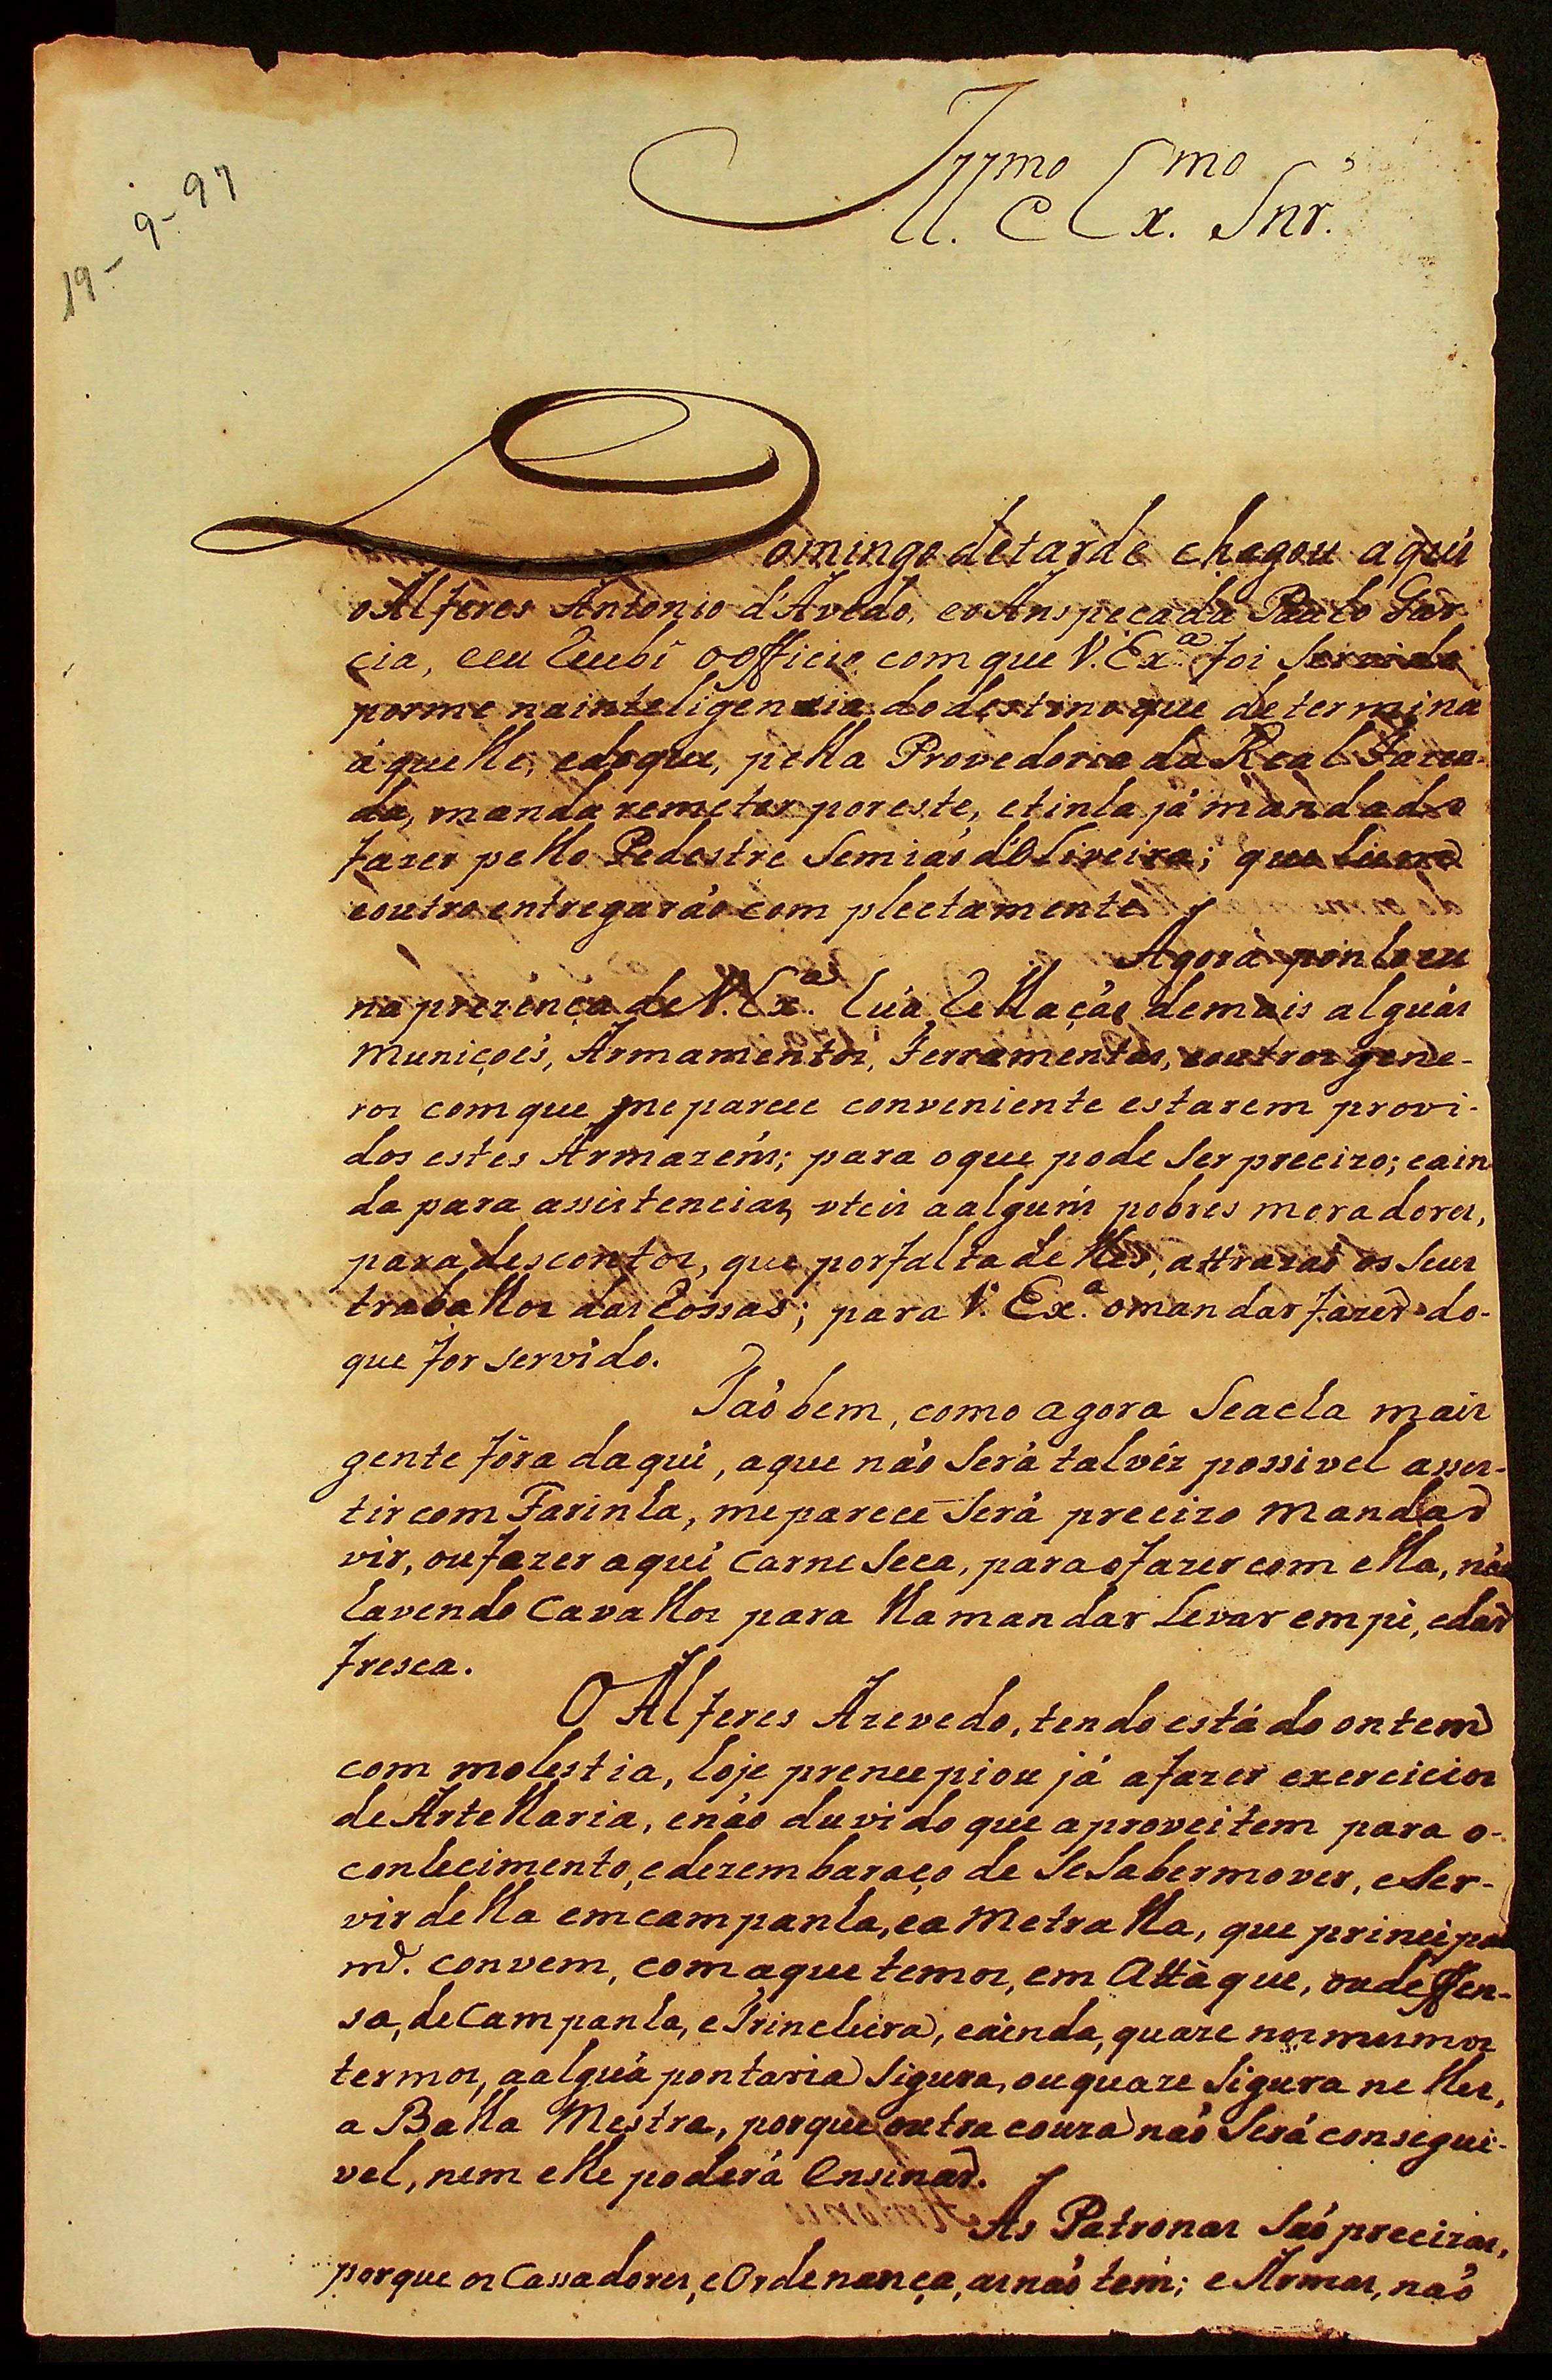 19-9-97
Ill.mo e Ex.mo Snr.
Domingo de tarde chegou aqui
o Alferes Antonio d'Avedo, e o Anspeçada Paulo Gar-
cia, e eu recebi o officio com que V. Ex.a foi servido
porme na inteligencia do destino que determina
áquelle, e do que, pella Provedoria da Real Fazen-
da, manda remeter por este, e tinha já mandado
fazer pello Pedestre Semiaõ d'Oliveira; que hum
e outro entregaráo completamente.
Agora ponho eu
na prezença de V. Ex.a húa Rellaçaõ de mais algúas
Muniçoés, Armamentos, Ferramentas, e outros gene-
ros com que me parece conveniente estarem provi-
dos estes Armazéns; para o que pode ser precizo; e ain
da para assistencias uteis a alguns pobres moradores,
para descontos, que por falta delles, attrazaõ os seus
trabalhos das Rossas; para V. Ex.a o mandar fazer do-
que for servido.
Taõbem, como agora se acha mais
gente fóra daqui, a que náo será talvéz possivel assis-
tir com Farinha, me parece será precizo mandar
vir, ou fazer aqui carne seca, para o fazer com ella, náo
havendo cavallos para lha mandar levar em pé, e dar
fresca.
O Alferes Azevedo, tendo estádo ontem
com molestia, hoje prencipiou já a fazer exercicios
de Artelharia, e náo duvido que aproveitem para o-
conhecimento, e dezembaraço de se saber mover, e ser-
vir della em campanha, e a Metralha, que principal
m.te convem, com a que temos, em Attàque, ou deffen-
sa, de Campanha, e Trincheira, e áinda, quaze nos mesmos
termos, a algúa pontaria sigura, ou quaze sigura nelles,
a Balla Mestra, porque outra couza naõ será consegui-
vel, nem elle poderá ensinar.
As Patronas saõ precizas,
porque os Cassadores, e Ordenança, as naõ tem; e Armas, naõ